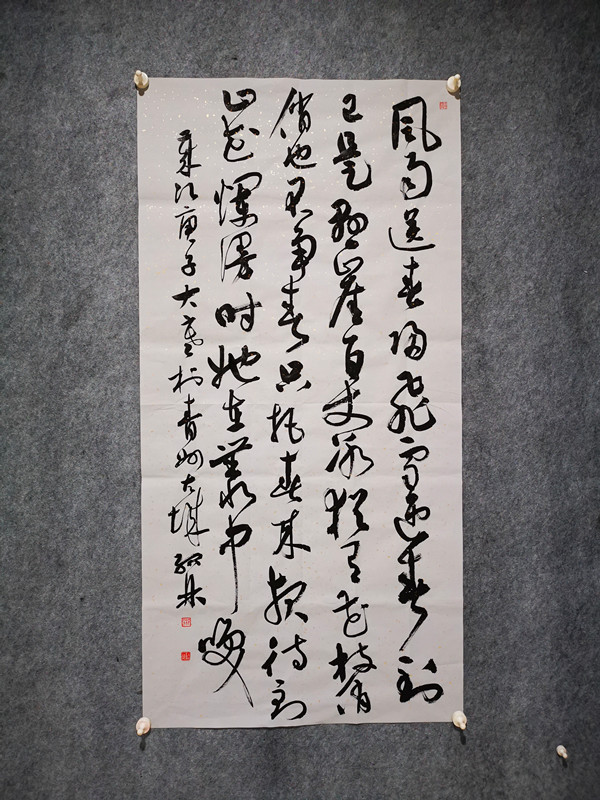 風雨送春歸飛雪迎春到
已是懸崖百丈冰猶有花枝俏
俏也不爭春只把春來報待到
山花爛漫時她在叢中咲
歲次庚子大寒於青州古城